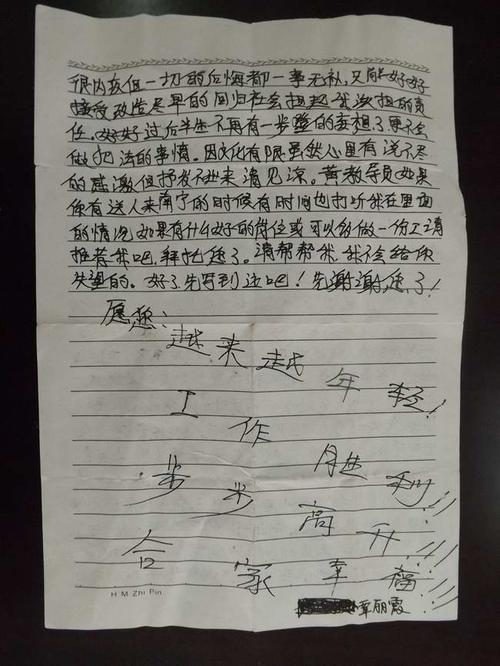 很内疚但一切的后悔都一事无补，只能好好
接受改造尽早的回归社会担起我该担的责
任。好好过后半生不再有一步登的妄想了更不会
做犯法的事情。因文化有限虽然心里有说不尽
的感激但抒发不出来请见谅。黄教导员如果
你有送人来南宁的时候有时间也打听我在里面
的情况如果有什么好的岗位或可以多做一份工请
推荐我吧，拜托您了。请帮帮我，我不会给你
失望的。好了先写到这吧！先谢谢您了！
愿您：
越来越年轻！
工作胜利！
步步高升！
合家幸福！
覃丽霞
H M Zhi Pin